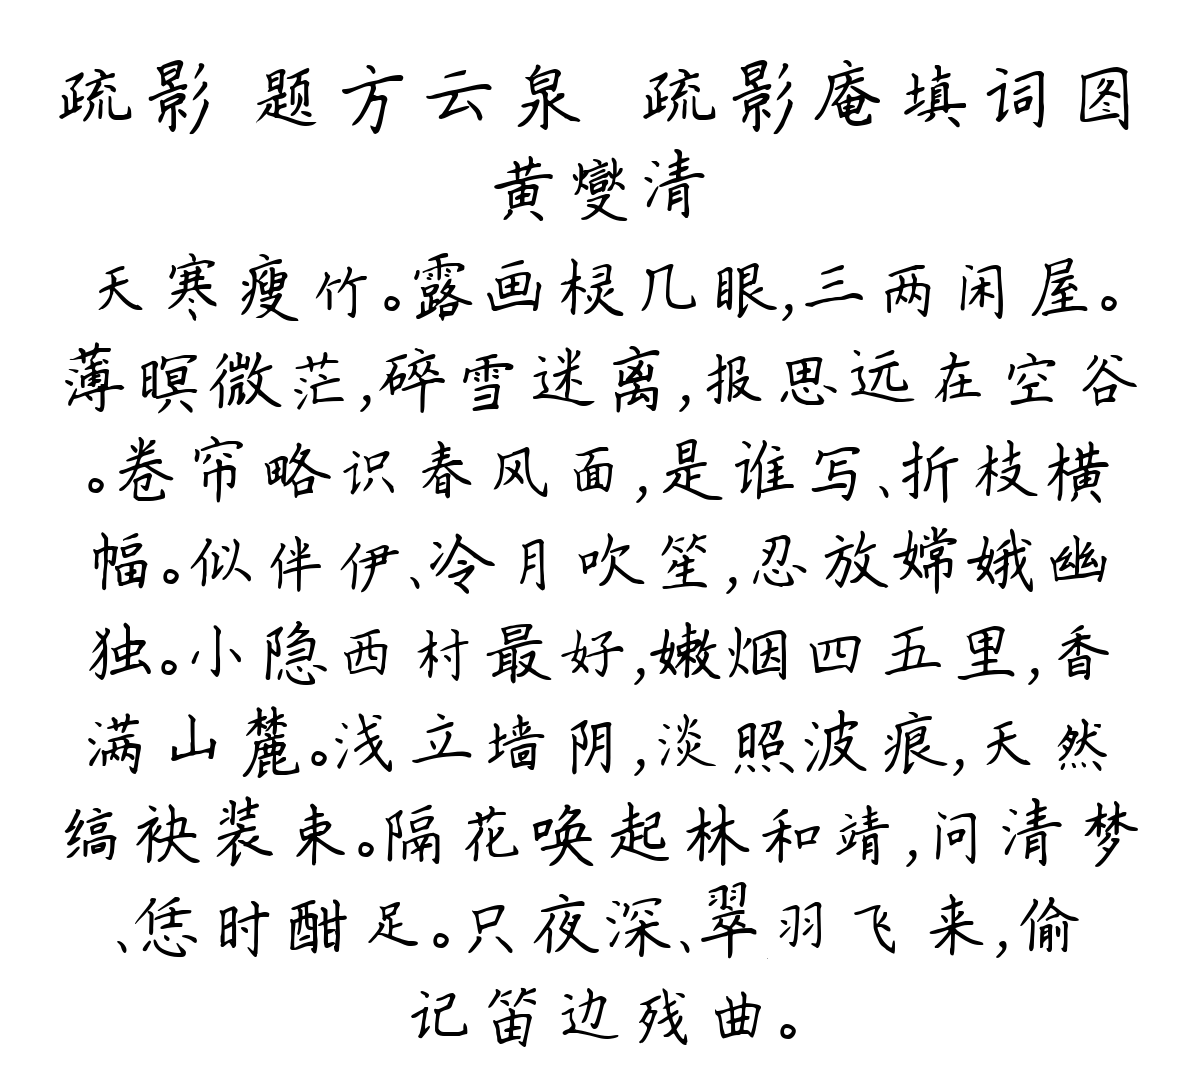 疏影 题方云泉 疏影庵填词图
黄燮清
天寒瘦竹。露画棂几眼,三两闲屋。
薄暝微茫,碎雪迷离,报思远在空谷
。卷帘略识春风面,是谁写、折枝横
幅。似伴伊、冷月吹笙,忍放嫦娥幽
独。小隐西村最好,嫩烟四五里,香
满山麓。浅立墙阴,淡照波痕,天然
缟袂装束。隔花唤起林和靖,问清梦
、恁时酣足。只夜深、翠羽飞来,偷
记笛边残曲。